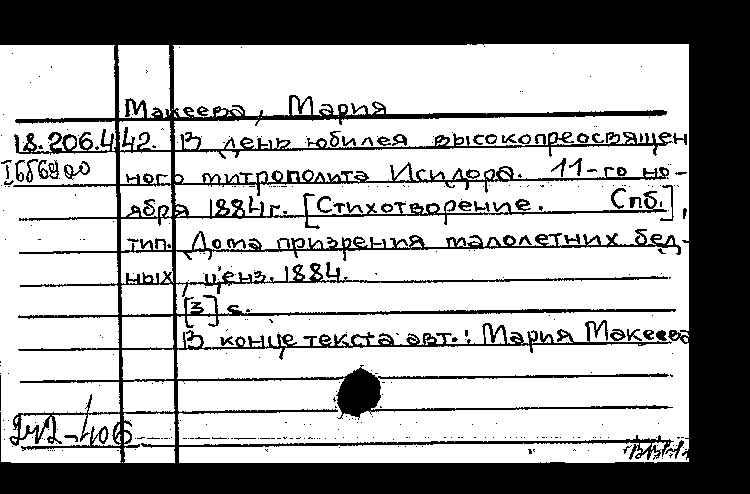 Макеева, Мария
18.206.4.42. В день юбилея высокопреосвящен
ного митрополита Исидора. 11-го но-
ября 1884г. [Стихотворение. Спб.],
тип. Дома призрения малолетних бед-
ных, ценз. 1884.
[3] с.
В конце текста авт.: Мария Макеева
242-406